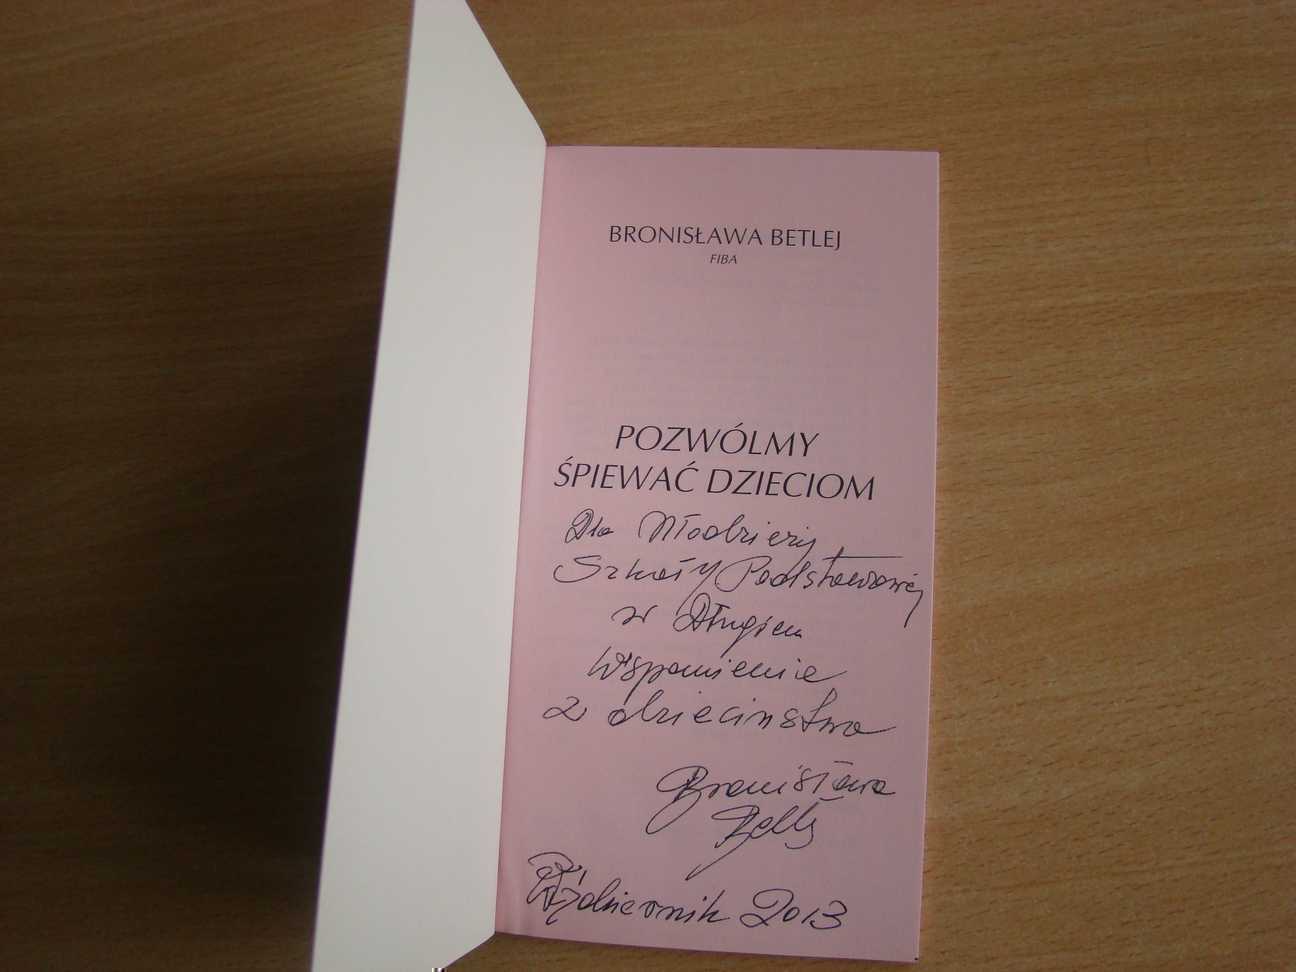 BRONISŁAWA BETLEJ
FIBA
POZWÓLMY
ŚPIEWAĆ DZIECIOM
Dla Młodzieży
Szkoły Podstawowej
w Długiem
Wspomienie
z dzieciństwa
Bronisława
Betlej
Październik 2013